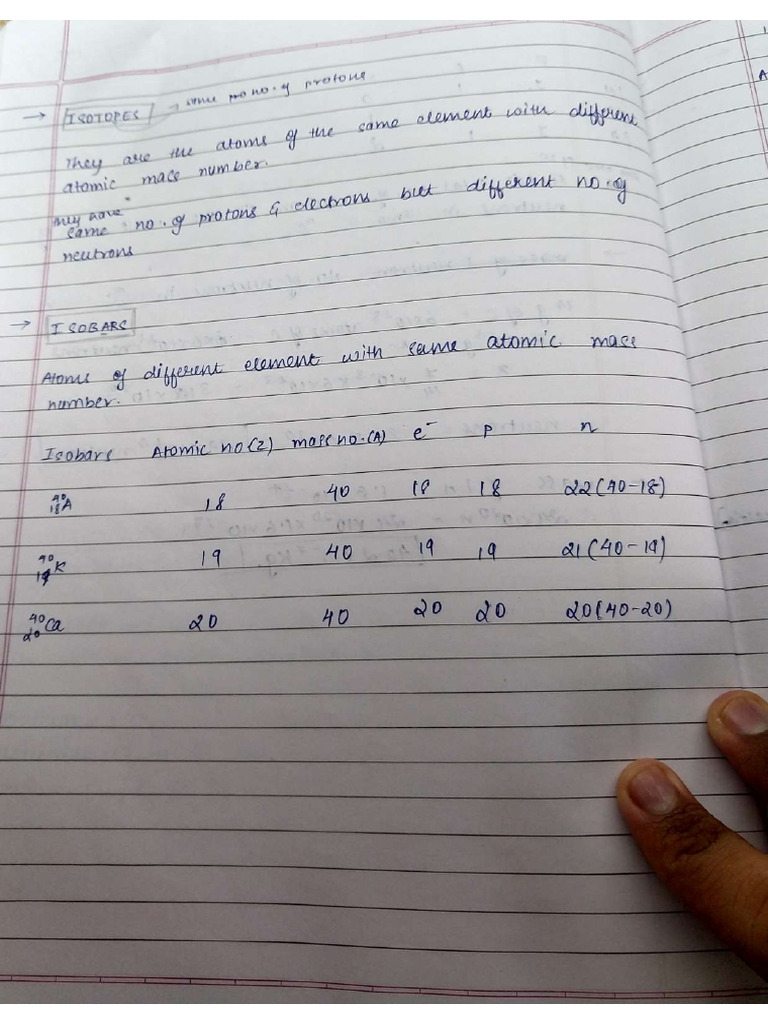 → ISOTOPES → same no. of protons
They are the atoms of the same element with different
atomic mass number.
They have
same no. of protons & electrons but different no. of
neutrons
→ ISOBARS
Atoms of different element with same atomic mass
number.
Isobars Atomic no(Z) mass no.(A) e⁻ P n
⁴⁰₁₈A 18 40 18 18 22(40-18)
⁴⁰₁₉K 19 40 19 19 21(40-19)
⁴⁰₂₀Ca 20 40 20 20 20(40-20)